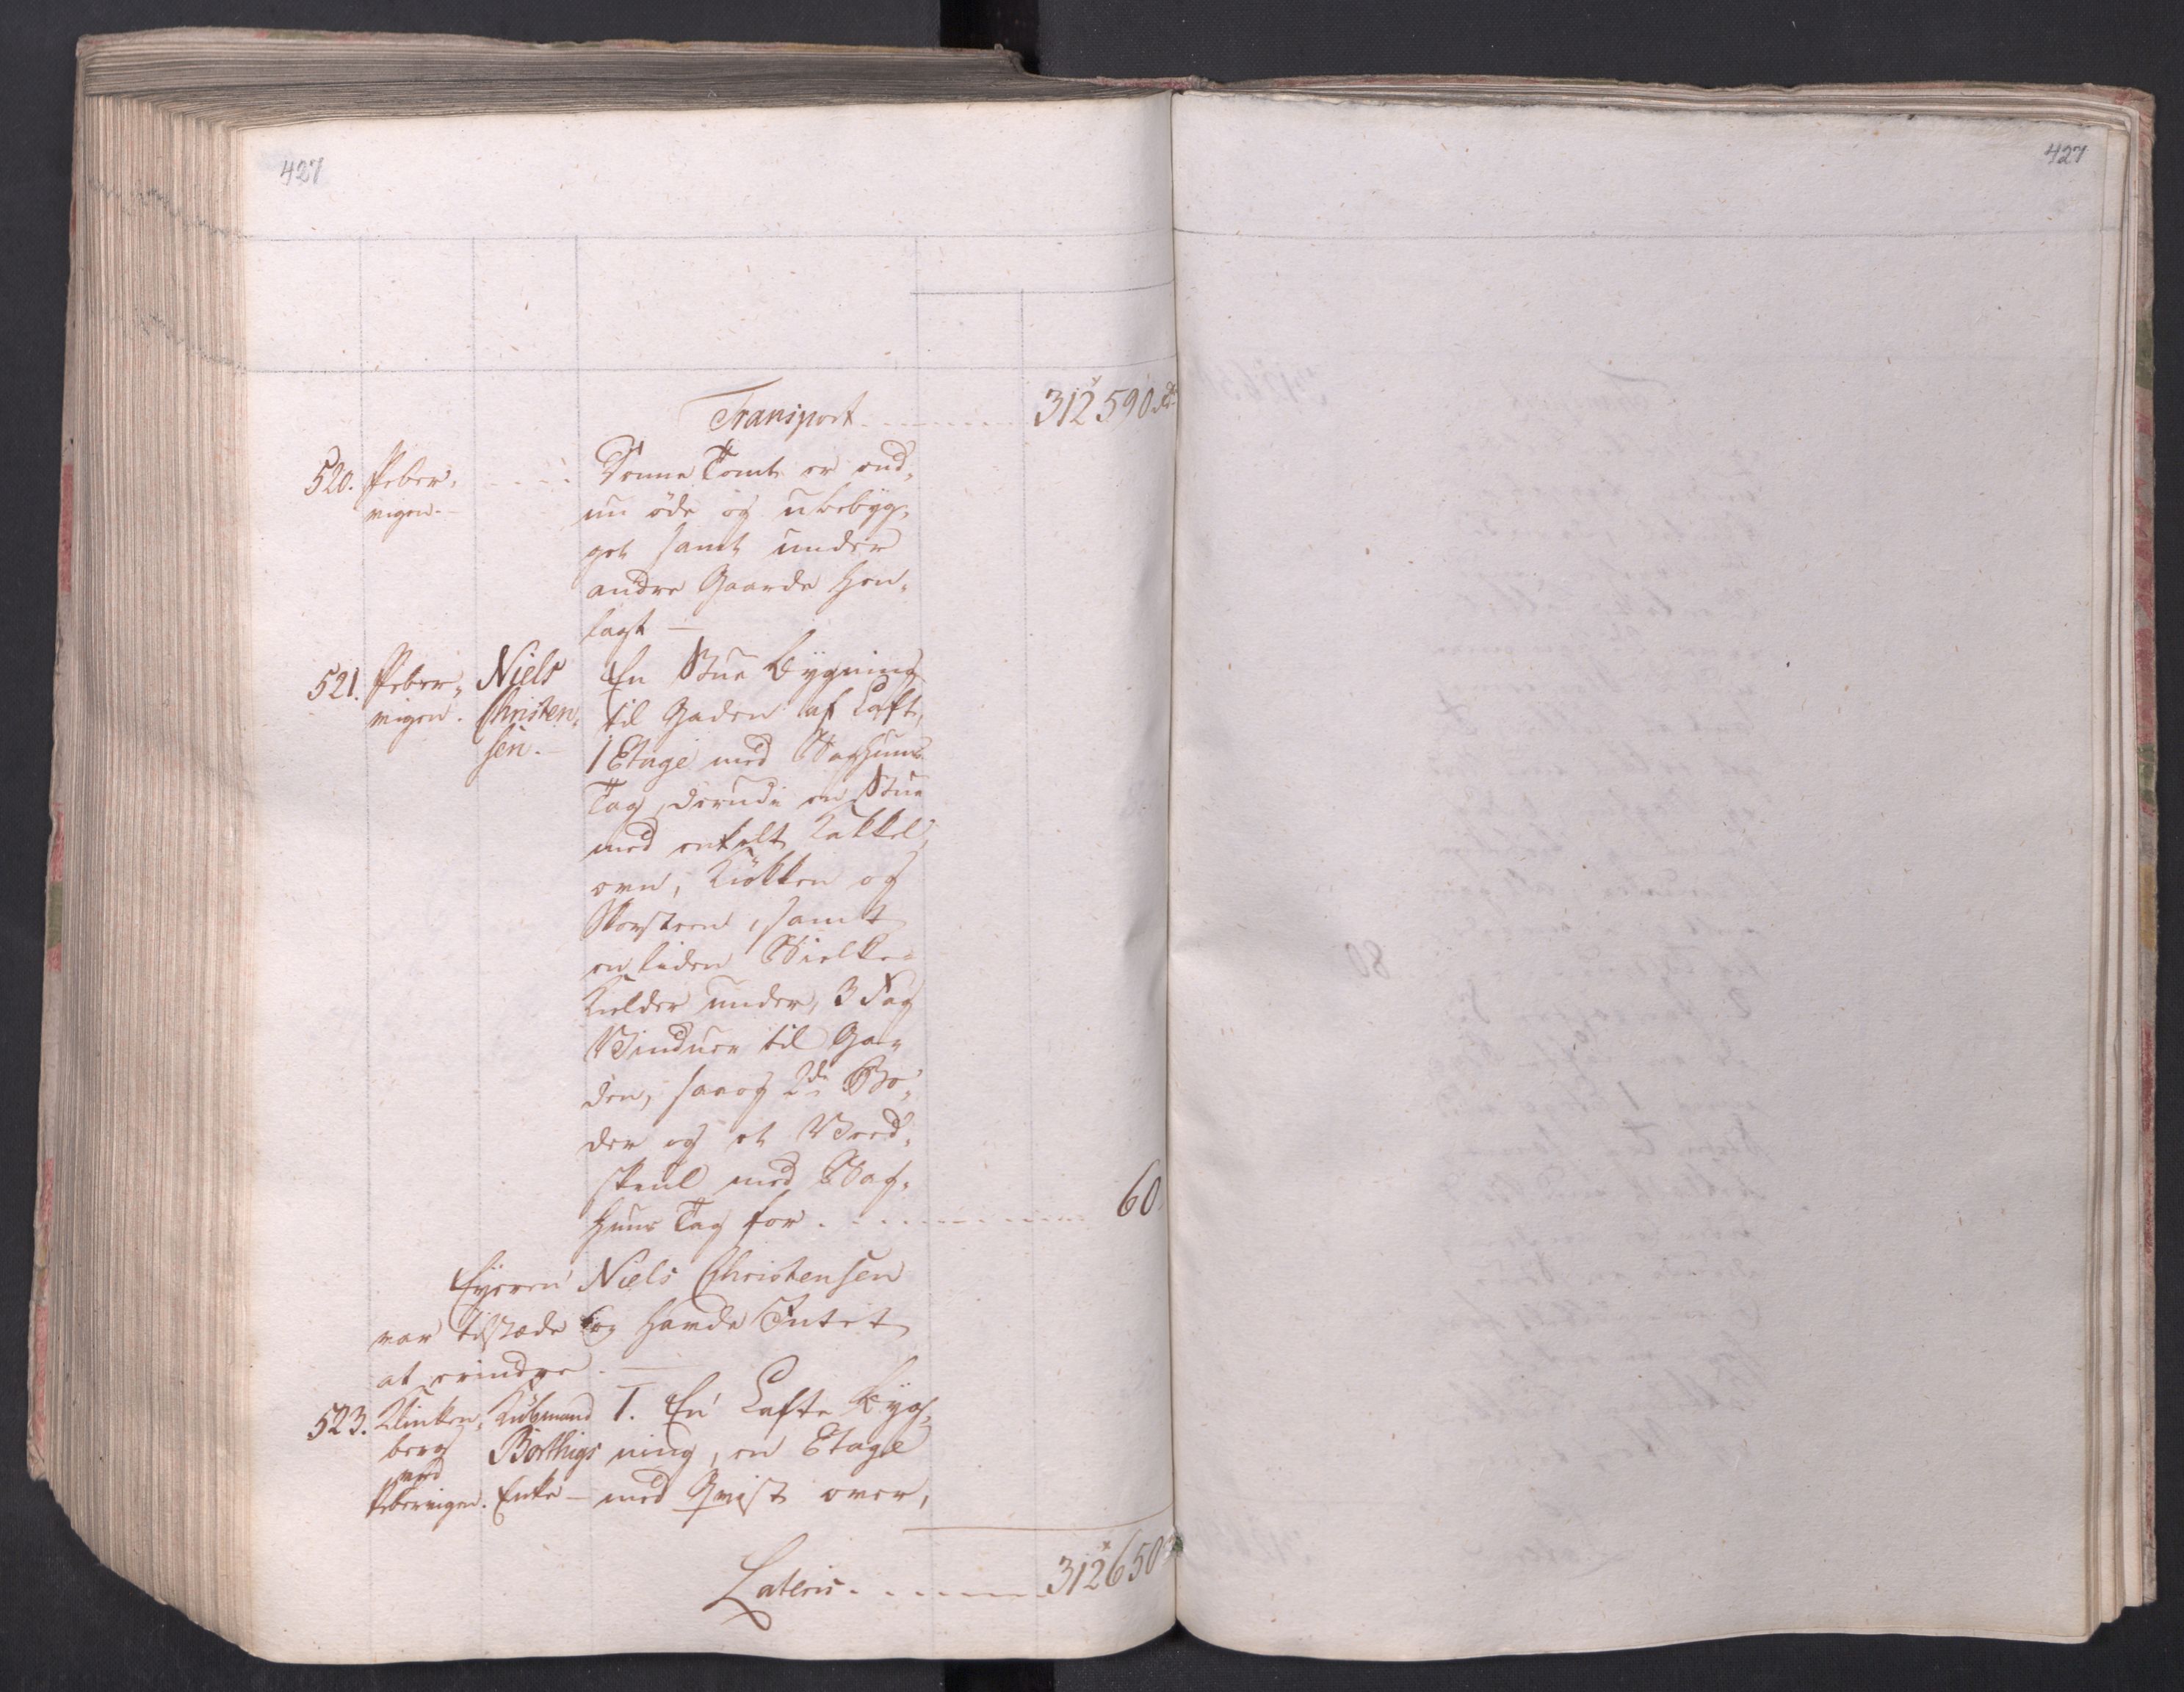 427
427
Transport 312590 Rd
520. Peber-
vigen.
Denne Tomt er end-
nu öde og ubebyg-
get samt under
andre Gaarde hen-
lagt —
521. Peber-
vigen.
Niels
Christen-
sen. —
En Stue Bygning
til Gaden af Laft,
1 Etage med Baghuns
Tag, derudi en Stue
med enkelt Kakkel-
ovn, Kiökken og
Skorsteen, samt
en liden Bielke-
Kielder under, 3 Fag
Vinduer til Ga-
den, saaog 2de Bo-
der og et Veed-
skuul med Bag-
huns Tag for 60
Eyeren Niels Christensen
var tilstæde og havde Intet
at erindre. —
523. Klinken-
berg
ved
Pebervigen.
Kiöbmand
Borthigs
Enke —
1. En Lafte Byg-
ning, en Etage
med Qvist over,
Lateris 312650